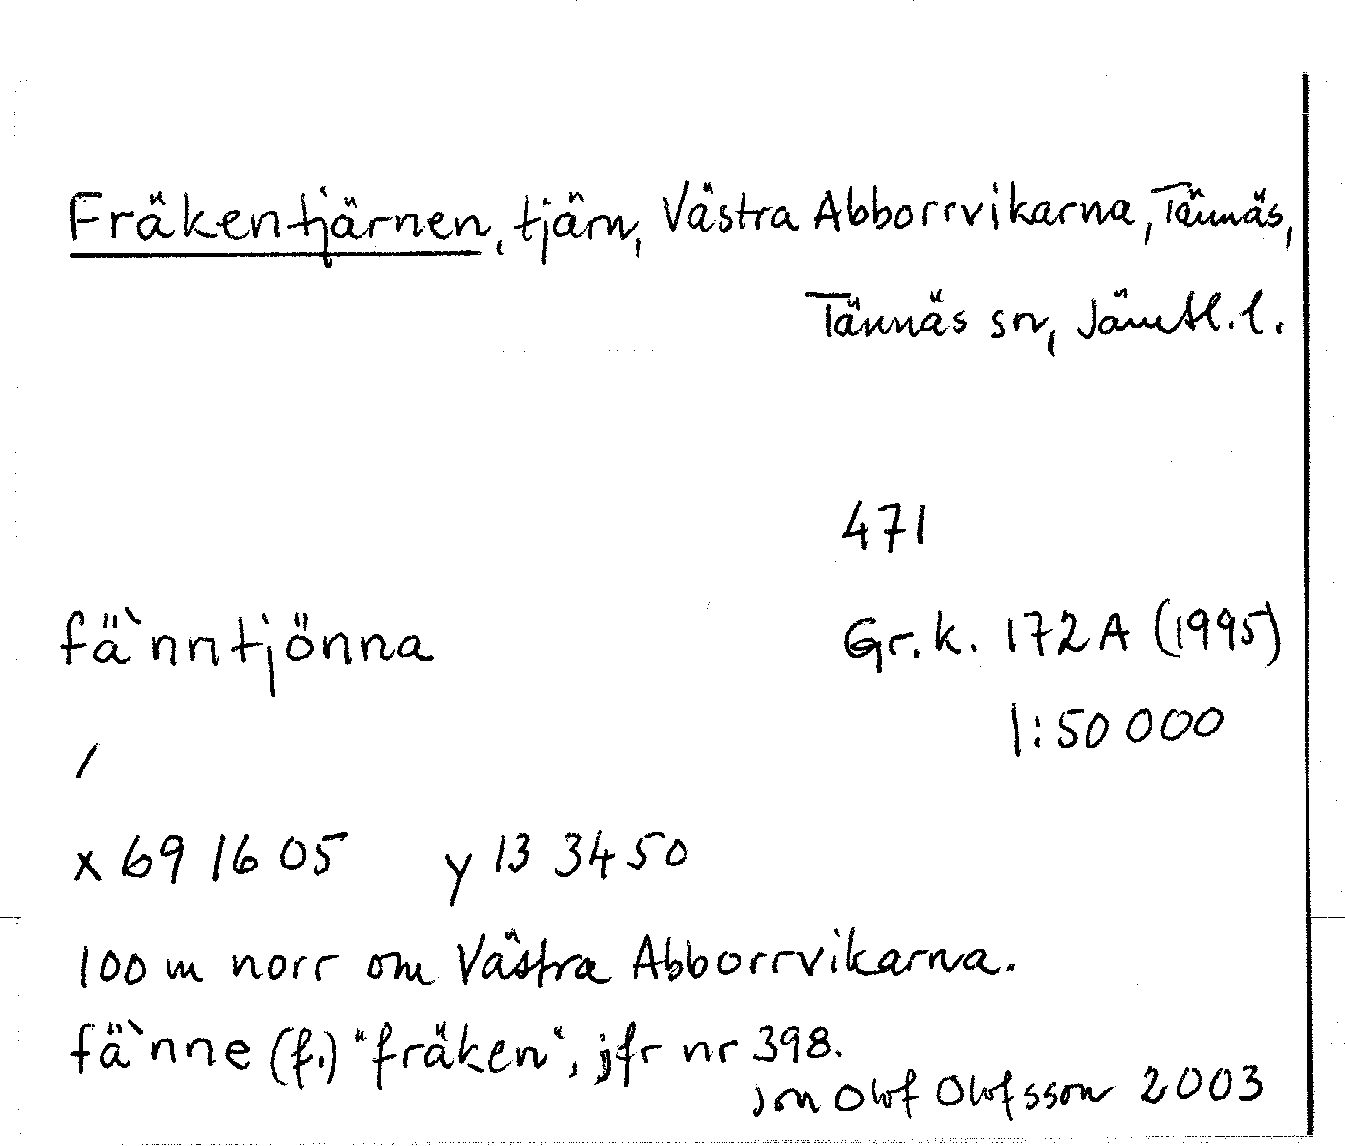 Fräkentjärnen, tjärn, Västra Abborrvikarna, Tännäs,
Tännäs sn, Jämtl. l.
471
fä`nntjönna
Gr. k. 172 A (1995)
1:50 000
/
x 69 16 05 y 13 34 50
100 m norr om Västra Abborrvikarna.
fä`nne (f.) "fräken", jfr nr 398.
Jon Olof Olofsson 2003